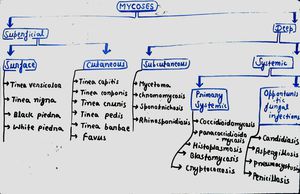 MYCOSES
Superficial
Deep
Surface
Cutaneous
Subcutaneous
Systemic
Tinea versicolor
Tinea nigra
Black piedra
White piedra
Tinea capitis
Tinea corporis
Tinea cruris
Tinea pedis
Tinea barbae
Favus
Mycetoma
Chromomycosis
Sporotrichosis
Rhinosporidiosis
Primary
Systemic
Coccidioidomycosis
paracoccidioido
mycosis
Histoplasmosis
Blastomycosis
Cryptococcosis
Opportunis
tic
fungal
infections
Candidiasis
Aspergillosis
pneumocystosis
Penicilliosis